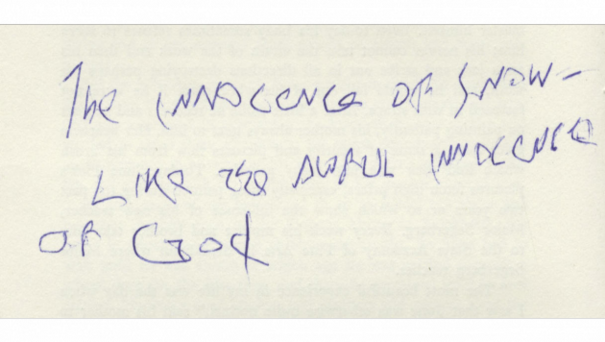 The innocence of snow-
Like the awful innocence
of God